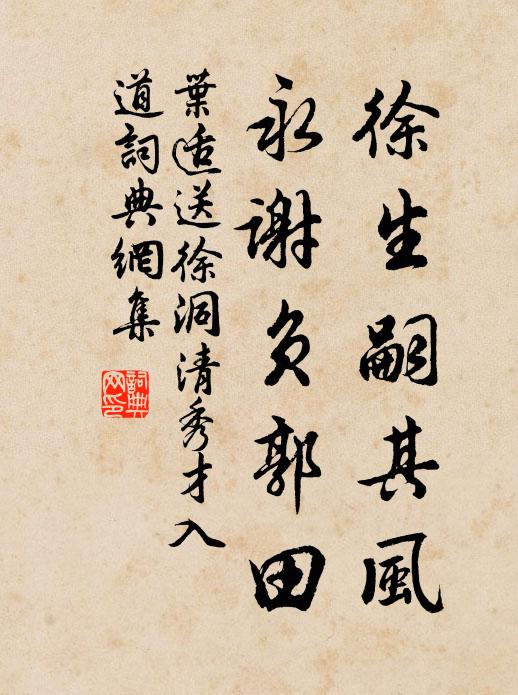 徐生嗣其風
永謝負郭田
葉适送徐洞清秀才入
道詞典網集
詞典網印